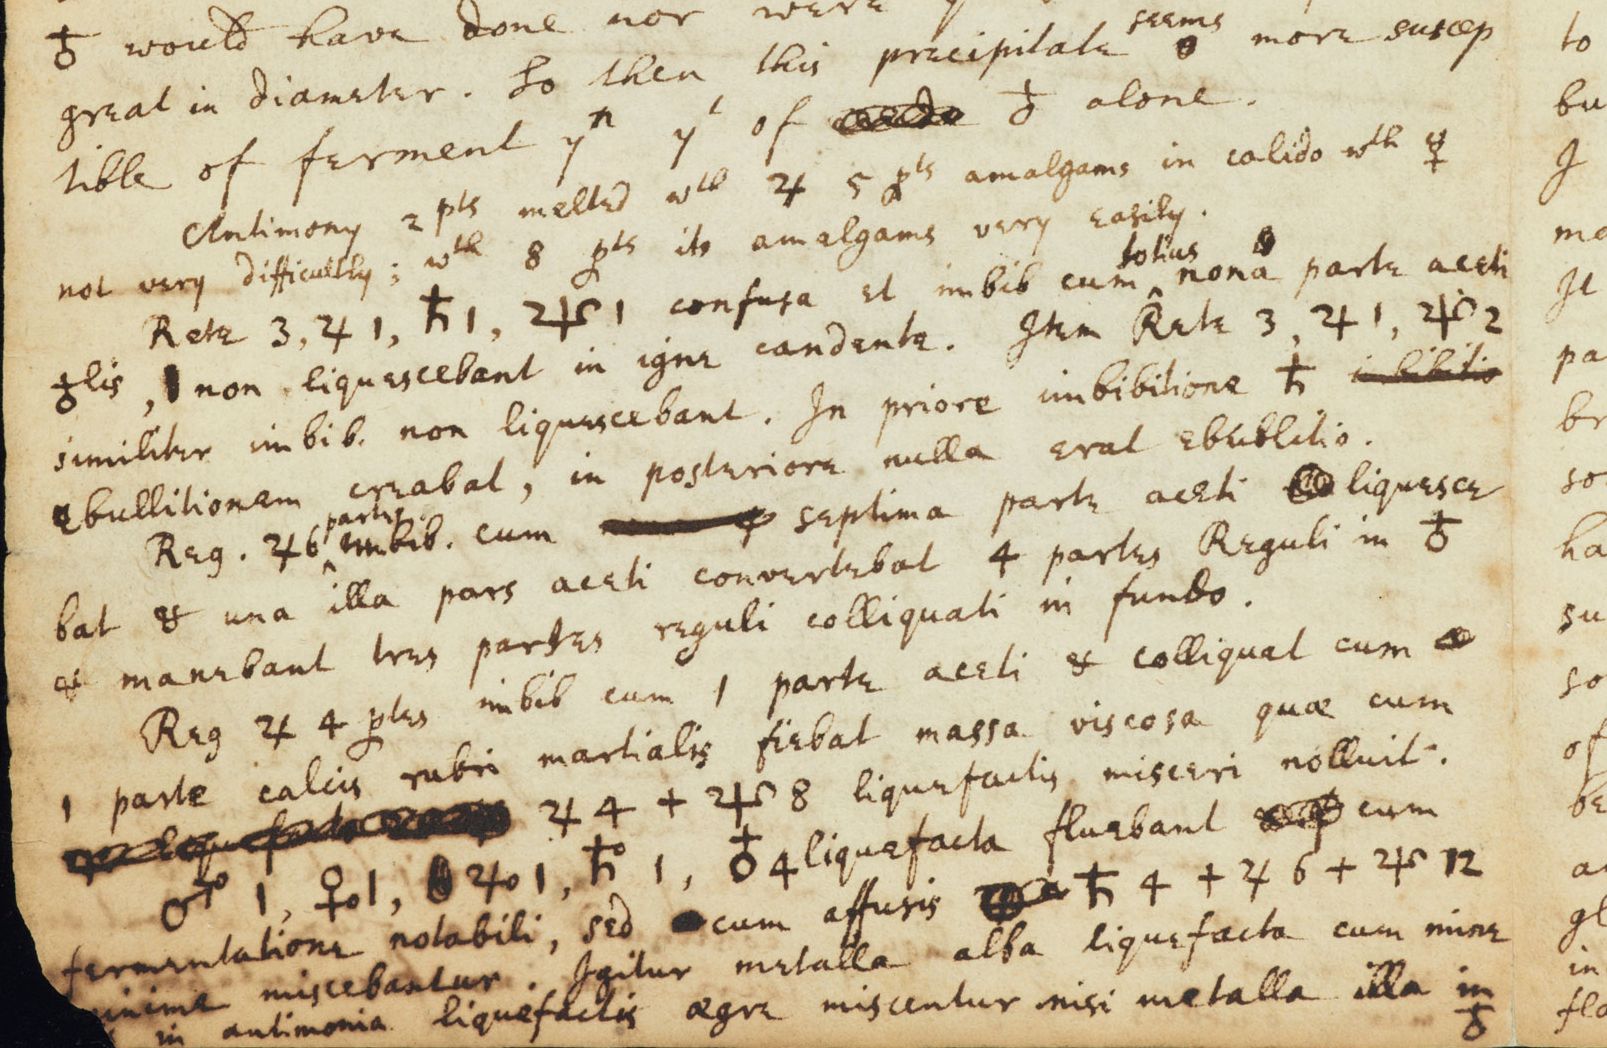 ♁ would have done nor were
great in diameter. So then this precipitate seems more suscep
tible of ferment yn yt of ♁ alone.
Antimony 2 pts melted wth ♃ 5 pts amalgams in calido wth ☿
not very difficultly; wth 8 pts its amalgams very easily.
Rete 3, ♃ 1, ♄ 1, 1 confusa et imbib cum totius nona parte aceti
♁lis, non liquescebant in igne candente. Item Rete 3, ♃ 1, 2
similiter imbib. non liquescebant. In priore imbibitione ♄ imbibitio
ebullitionem creabat, in posteriore nulla erat ebullitio.
Reg. ♃ 6 partes imbib. cum septima parte aceti liquesce
bat & una illa pars aceti convertebat 4 partes Reguli in ♁
& manebant tres partes reguli colliquati in fundo.
Reg ♃ 4 ptes imbib cum 1 parte aceti & colliquat cum
1 parte calcis rubri martialis fiebat massa viscosa quæ cum
♃ 4 + 8 liquefactis misceri nolluit.
1, 1, 1, 1, ♁ 4 liquefacta fluebant cum
fermentatione notabili, sed cum affusis ♄ 4 + ♃ 6 + 12
minime miscebantur. Igitur metalla alba liquefacta cum mine
in antimonia liquefactis ægre miscentur nisi metalla illa in
♁
to
bu
I
It
pa
br
so
ha
su
so
of
be
gl
in